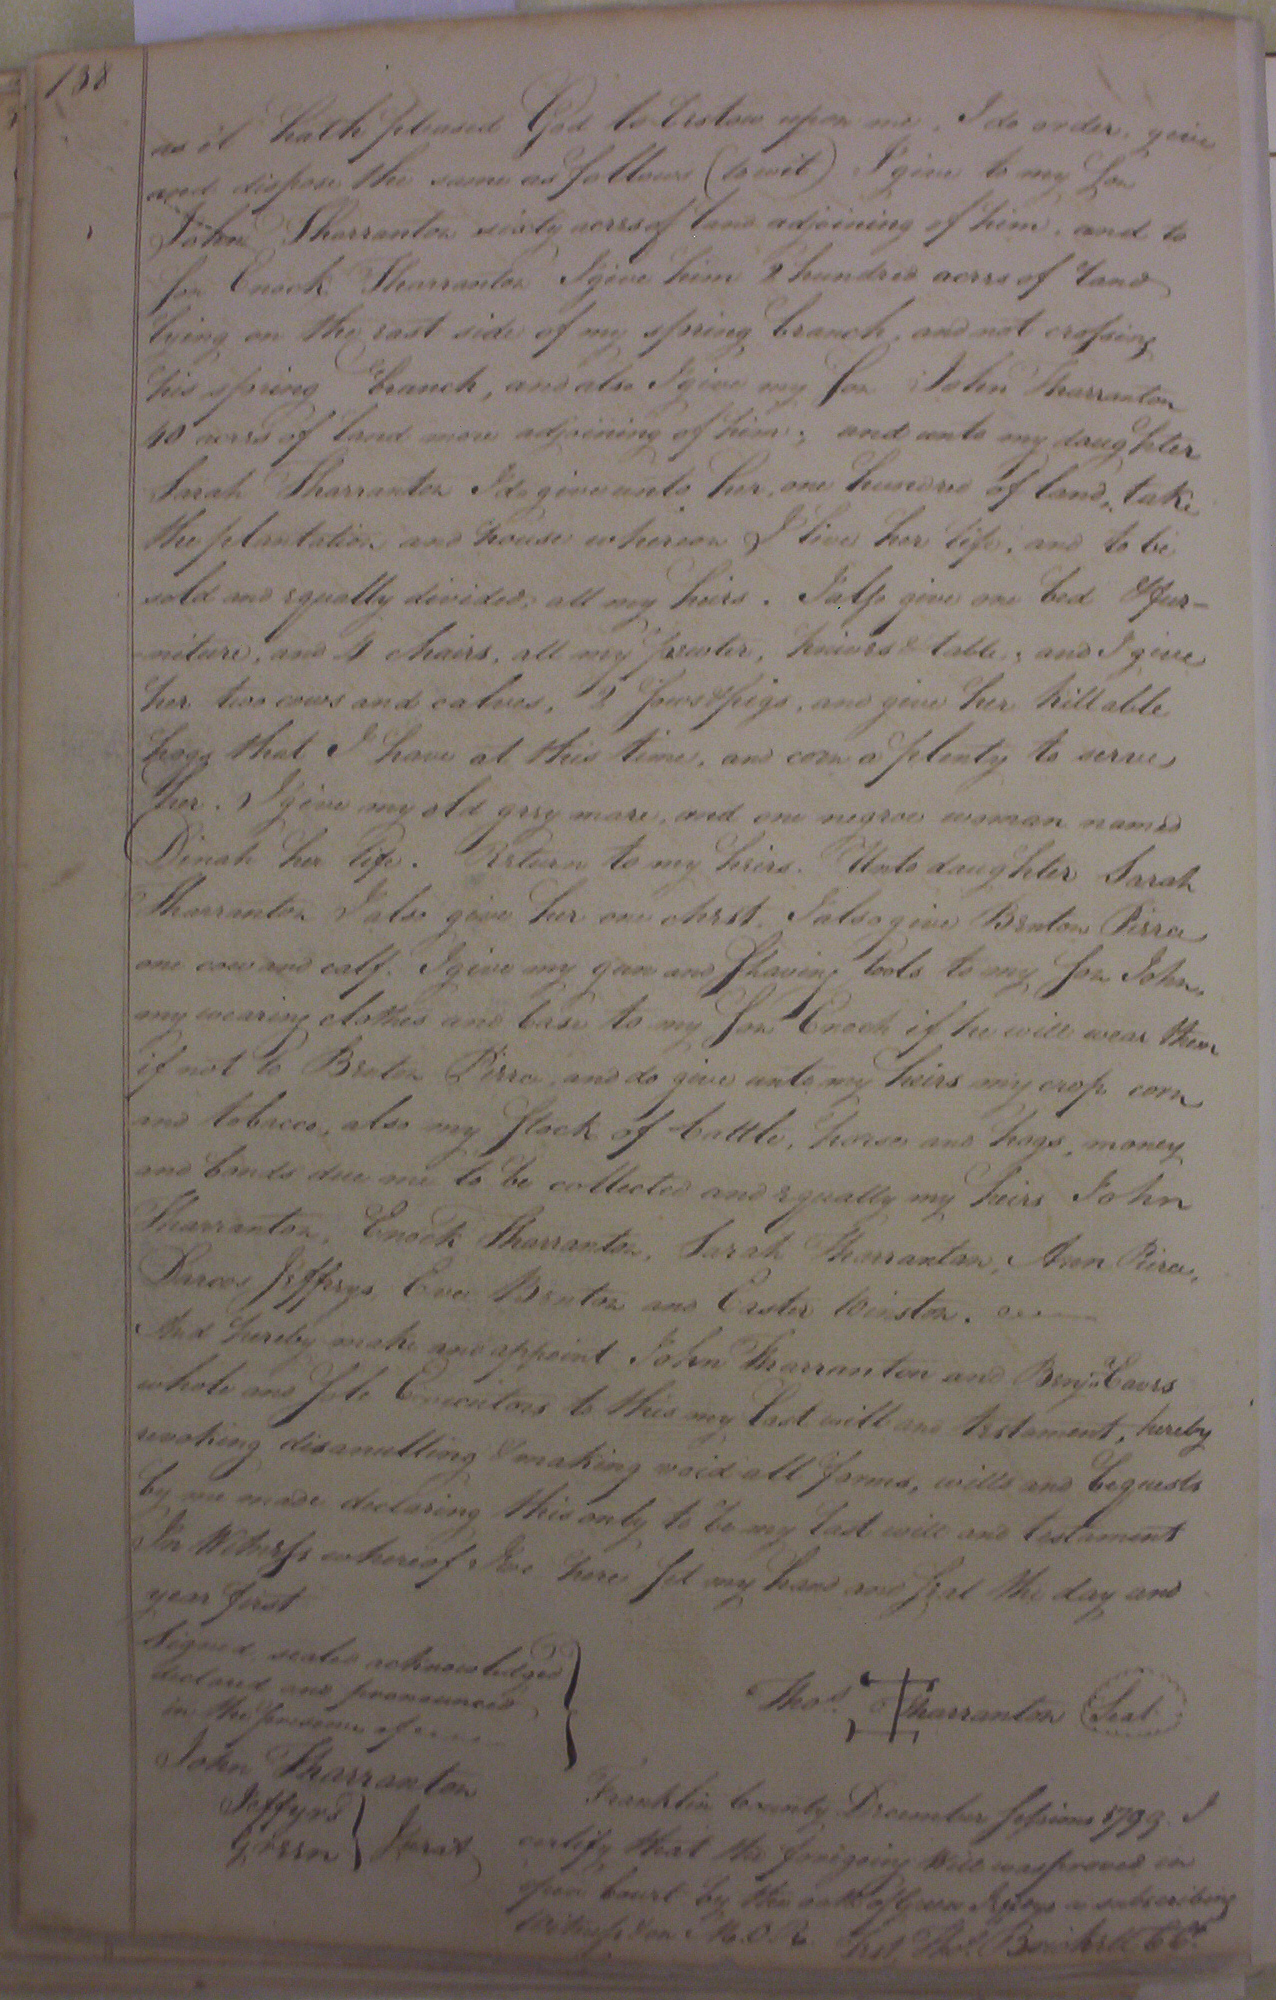 138
as it hath pleased God to bestow upon me, I do order, give
and dispose the same as follows (to wit) I give to my Son
John Tharranton sixty acres of land adjoining of him, and to
Son Enoch Tharranton I give him 2 hundred acres of land
lying on the east side of my spring branch, and not crossing
his spring branch, and also I give my Son John Tharranton
40 acres of land more adjoining of him; and unto my daughter
Sarah Tharranton I do give unto her, one hundred of land, take
the plantation and house whereon I live her life, and to be
sold and equally divided, all my heirs. I also give one bed & fur-
niture, and 4 chairs, all my pewter, knives & table, and I give
her two cows and calves, 2 Sows & pigs, and give her killable
hogs that I have at this time, and corn a plenty to serve
her. I give my old grey mare, and one negroe woman named
Dinah her life. Return to my heirs. Unto daughter Sarah
Tharranton I also give her one chest. I also give Benton Pirce
one cow and calf. I give my gun and Shaving tools to my Son John,
my wearing clothes and case to my Son Enoch if he will wear them
if not to Benton Pirce, and do give unto my heirs my crop corn
and tobacco, also my Stock of Cattle, horses and hogs, money
and bonds due me to be collected and equally my heirs John
Tharranton, Enoch Tharranton, Sarah Tharranton, Ann Pirce,
Darcos Jeffreys, Eve Benton and Easter Winston.
And hereby make and appoint John Tharranton and Benja Eaves
whole and Sole Executors to this my last will and testament, hereby
revoking disanulling & making void all forms, wills and bequests
by me made declaring this only to be my last will and testament
In Witness whereof I've here Set my hand and Seal the day and
year first
Signed, sealed acknowledged
declared and pronounced
in the presence of
Thos. Tharranton Seal
John Tharranton
Jeffreys
Green Jurat
Franklin County December Sessions 1799. I
certify that the foregoing Will was proved in
open Court by the oath of Green Jeffreys a subscribing
witness & on M.O.R. Test, Thos.